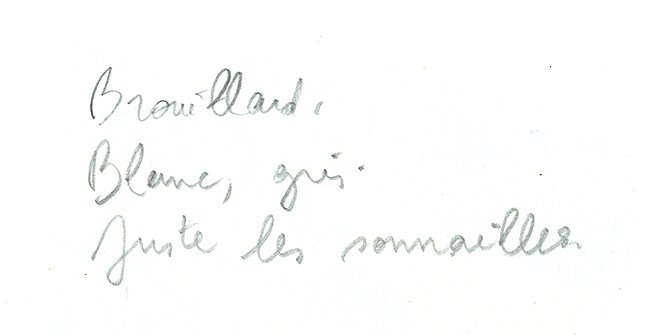 Brouillard.
Blanc, gris.
Juste les sonnailles.